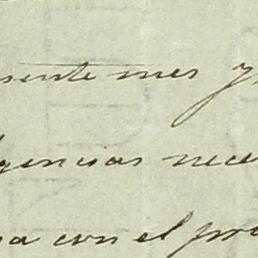 sente mes y
gencias nece
sa con el pro